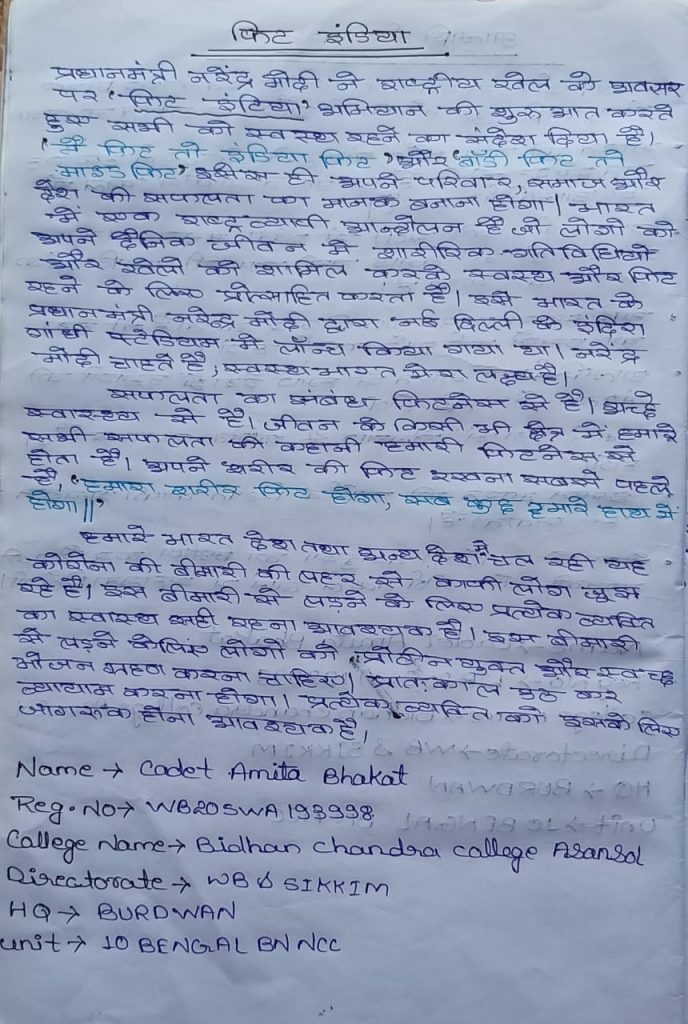 फिट इंडिया
प्रधानमंत्री नरेंद्र मोदी ने राष्ट्रीय खेल के अवसर
पर 'फिट इंडिया' अभियान की शुरुआत करते
हुए सभी को स्वस्थ रहने का संदेश दिया है।
'मैं फिट तो इंडिया फिट' और 'बॉडी फिट तो
माइंड फिट' इसे ही अपने परिवार, समाज और
देश की सफलता का मानक बनाना होगा। भारत
में एक राष्ट्रव्यापी आन्दोलन है जो लोगो को
अपने दैनिक जीवन में शारीरिक गतिविधियो
और खेलो को शामिल करके स्वस्थ और फिट
रहने के लिए प्रोत्साहित करता है। इसे भारत के
प्रधानमंत्री नरेन्द्र मोदी द्वारा नई दिल्ली के इंदिरा
गांधी स्टेडियम में लॉन्च किया गया था। नरेंद्र
मोदी चाहते है, स्वस्थ भारत मेरा लक्ष्य है।
सफलता का संबंध फिटनेस से है। अच्छे
स्वास्थ्य से है। जीवन के किसी भी क्षेत्र में हमारे
सभी सफलता की कहानी हमारी फिटनेस से
होता है। अपने शरीर को फिट रखना सबसे पहले
है, "हमारा शरीर फिट होगा, सब कुछ हमारे हाथ में
होगा॥"
हमारे भारत देश तथा अन्य देश में चल रही यह
कोरोना की बीमारी की लहर से काफी लोग जुझ
रहे हैं। इस बीमारी से लड़ने के लिए प्रत्येक व्यक्ति
का स्वास्थ सही रहना आवश्यक है। इस बीमारी
से लड़ने के लिए लोगो को प्रोटीन युक्त और स्वच्छ
भोजन ग्रहण करना चाहिए। प्रातःकाल उठ कर
व्यायाम करना होगा। प्रत्येक व्यक्ति को इसके लिए
जागरुक होना आवश्यक है।
Name → Cadet Amita Bhakat
Reg. No → WB20SWA193998
College Name → Bidhan Chandra College Asansol
Directorate → WB & SIKKIM
HQ → BURDWAN
Unit → 10 BENGAL BN NCC